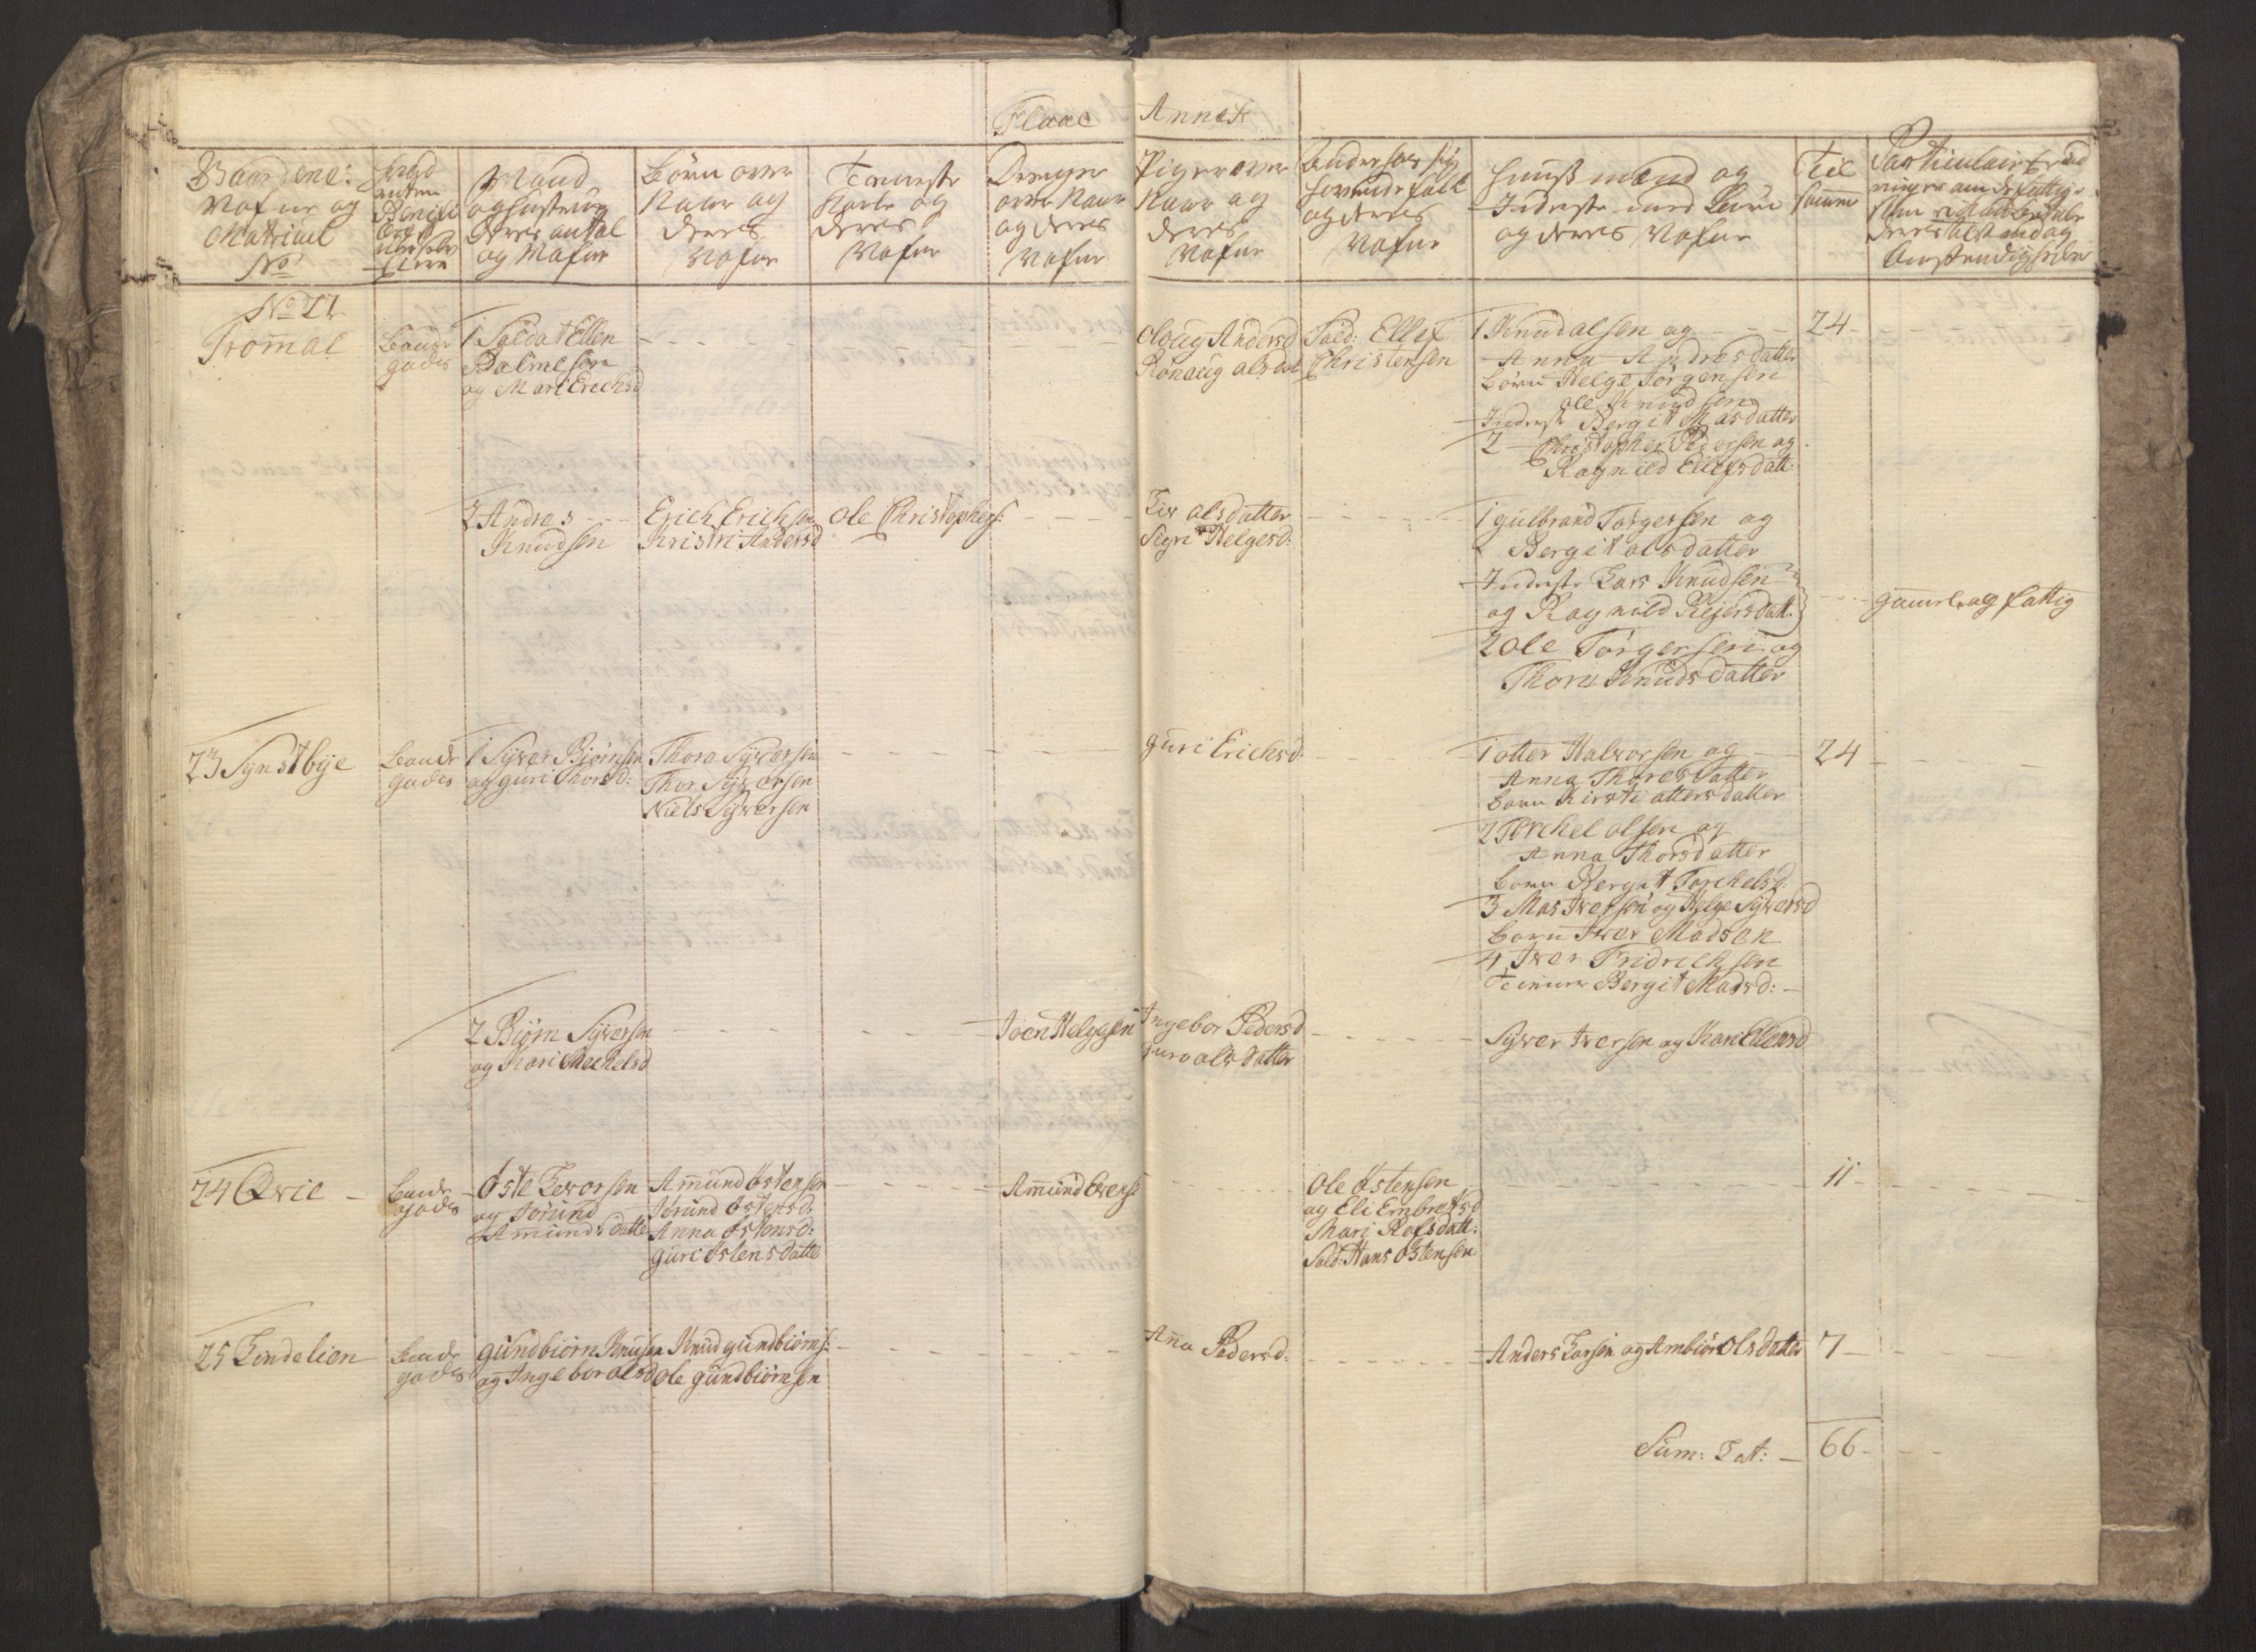 Flaae Annex
Gaardene:
Nafne og
Matricul
No
Mand
og hustrue
deres antal
og Nafne
Børn over
Aar og
deres
Nafne
Tieneste
Karle og
deres
Nafne
Drenger
over Aar
og deres
Nafne
Piger over
Aar og
deres
Nafne
og deres
Nafne
Huusmænd og
Inderste med Børn
og deres Nafne
Til
Summe
No 22
Trommal
Bønder
gods
1 Soldat Ellen
Palmeson
og Mari Erichsd
Oloug Andersd
Rønaug olsdat
Sold: Ellef
Christensen
1 Knud olsen og
Anna Andresdatter
Børn Helge Jørgensen
ole Knudsen
Inderst Bergit Masdatter
2 Christopher Pedersen og
Ragnild Ellefsdatt:
24
2 Andres
Knudsen
Erich Erichsen
Kristri Andersd
Ole Christophers:
Liv olsdatter
Sigri Helgesd:
1 gulbrand Torgersen og
Bergit olsdatter
Inderste Lars Knudsen
og Ragnild Rejersdatt:
2 Ole Torgersen og
Thore Knudsdatter
gammel og fattig
23 Synstbye
Bønde
gods
1 Syver Bjørnsen
og guri Thorsd:
Thora Syversen
Thor Syversen
Niels Syversen
guri Erichsd:
1 otter Halvorsen og
Anna Thoresdatter
Børn Kirsti ottersdatter
2 Torchel olsen og
Anna Thorsdatter
Børn Bergit Torchelsd:
3 Mas Iversen og Helge Syversd
Børn Iver Madsen
4 Iver Fridrichsen
Bergit Madsd:
24
2 Biørn Syversen
og Kari Mechelsd
Joen Helgesen
Ingebor Pedersd
guro olsdatter
Syver Iversen og Kari Ellensd
24 Qvie
Bønde
gods
Øste Levorsen
og Jørund
Amundsdatte
Amund Østensen
Jørund Østensd:
Anna Østensd:
guri Østensdatte
Amund Evens:
Ole Østensen
og Eli Embretsd
Mari Rolfsdatt:
Sold: Hans Østensen
11
25 Lindelien
Bønde
gods
gundbiørn Knusen
og Ingebor olsd
Knud gundbiørns:
ole gundbiørnsen
Anna Pedersd:
Anders Larsen og Ambiør olsdatter
7
Sum: Lat: 66